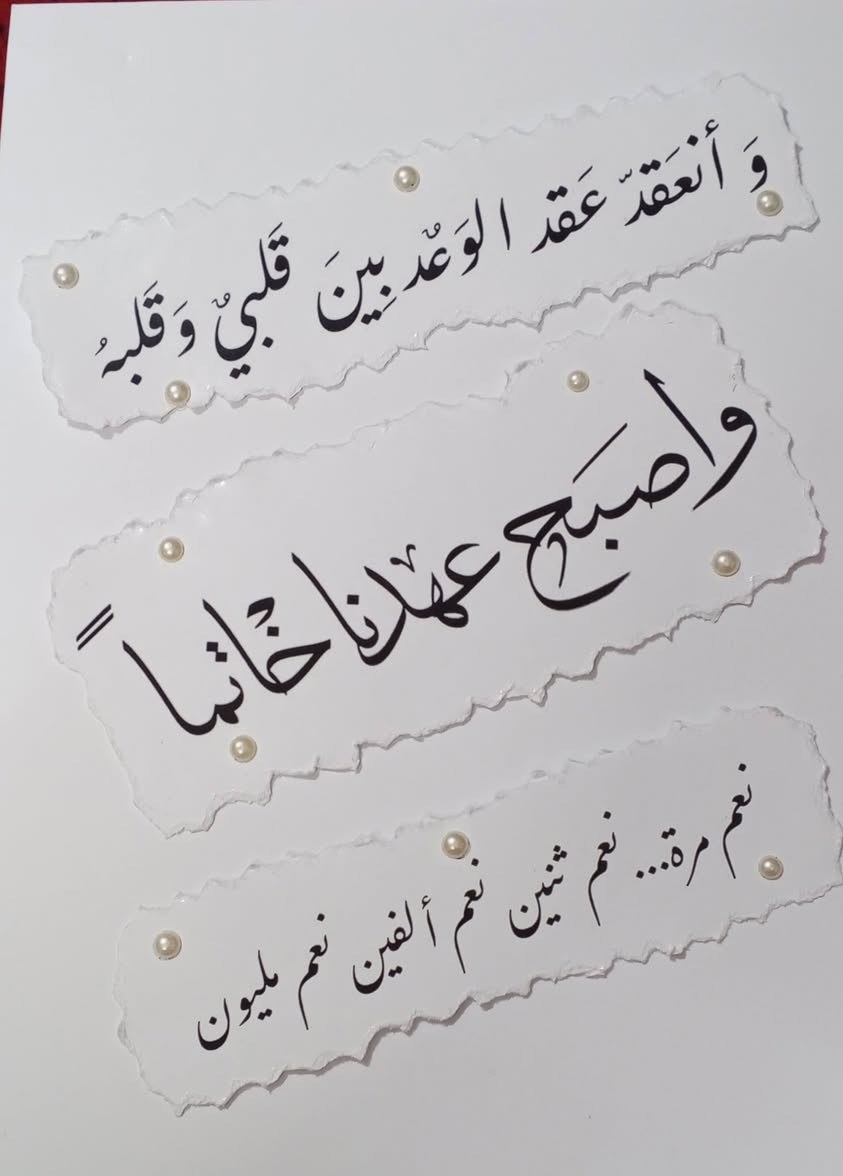 وَ أنعَقدّ عَقد الوَعْد بِينَ قَلبيْ وَقَلبهُ
واصبح عهدنا خْاتماً
نعم مرة... نعم ثنين نعم ألفين نعم مليون